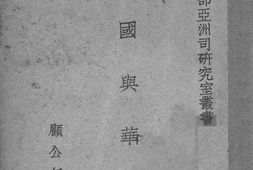 部亞洲司研究室叢書
國與華
顧公